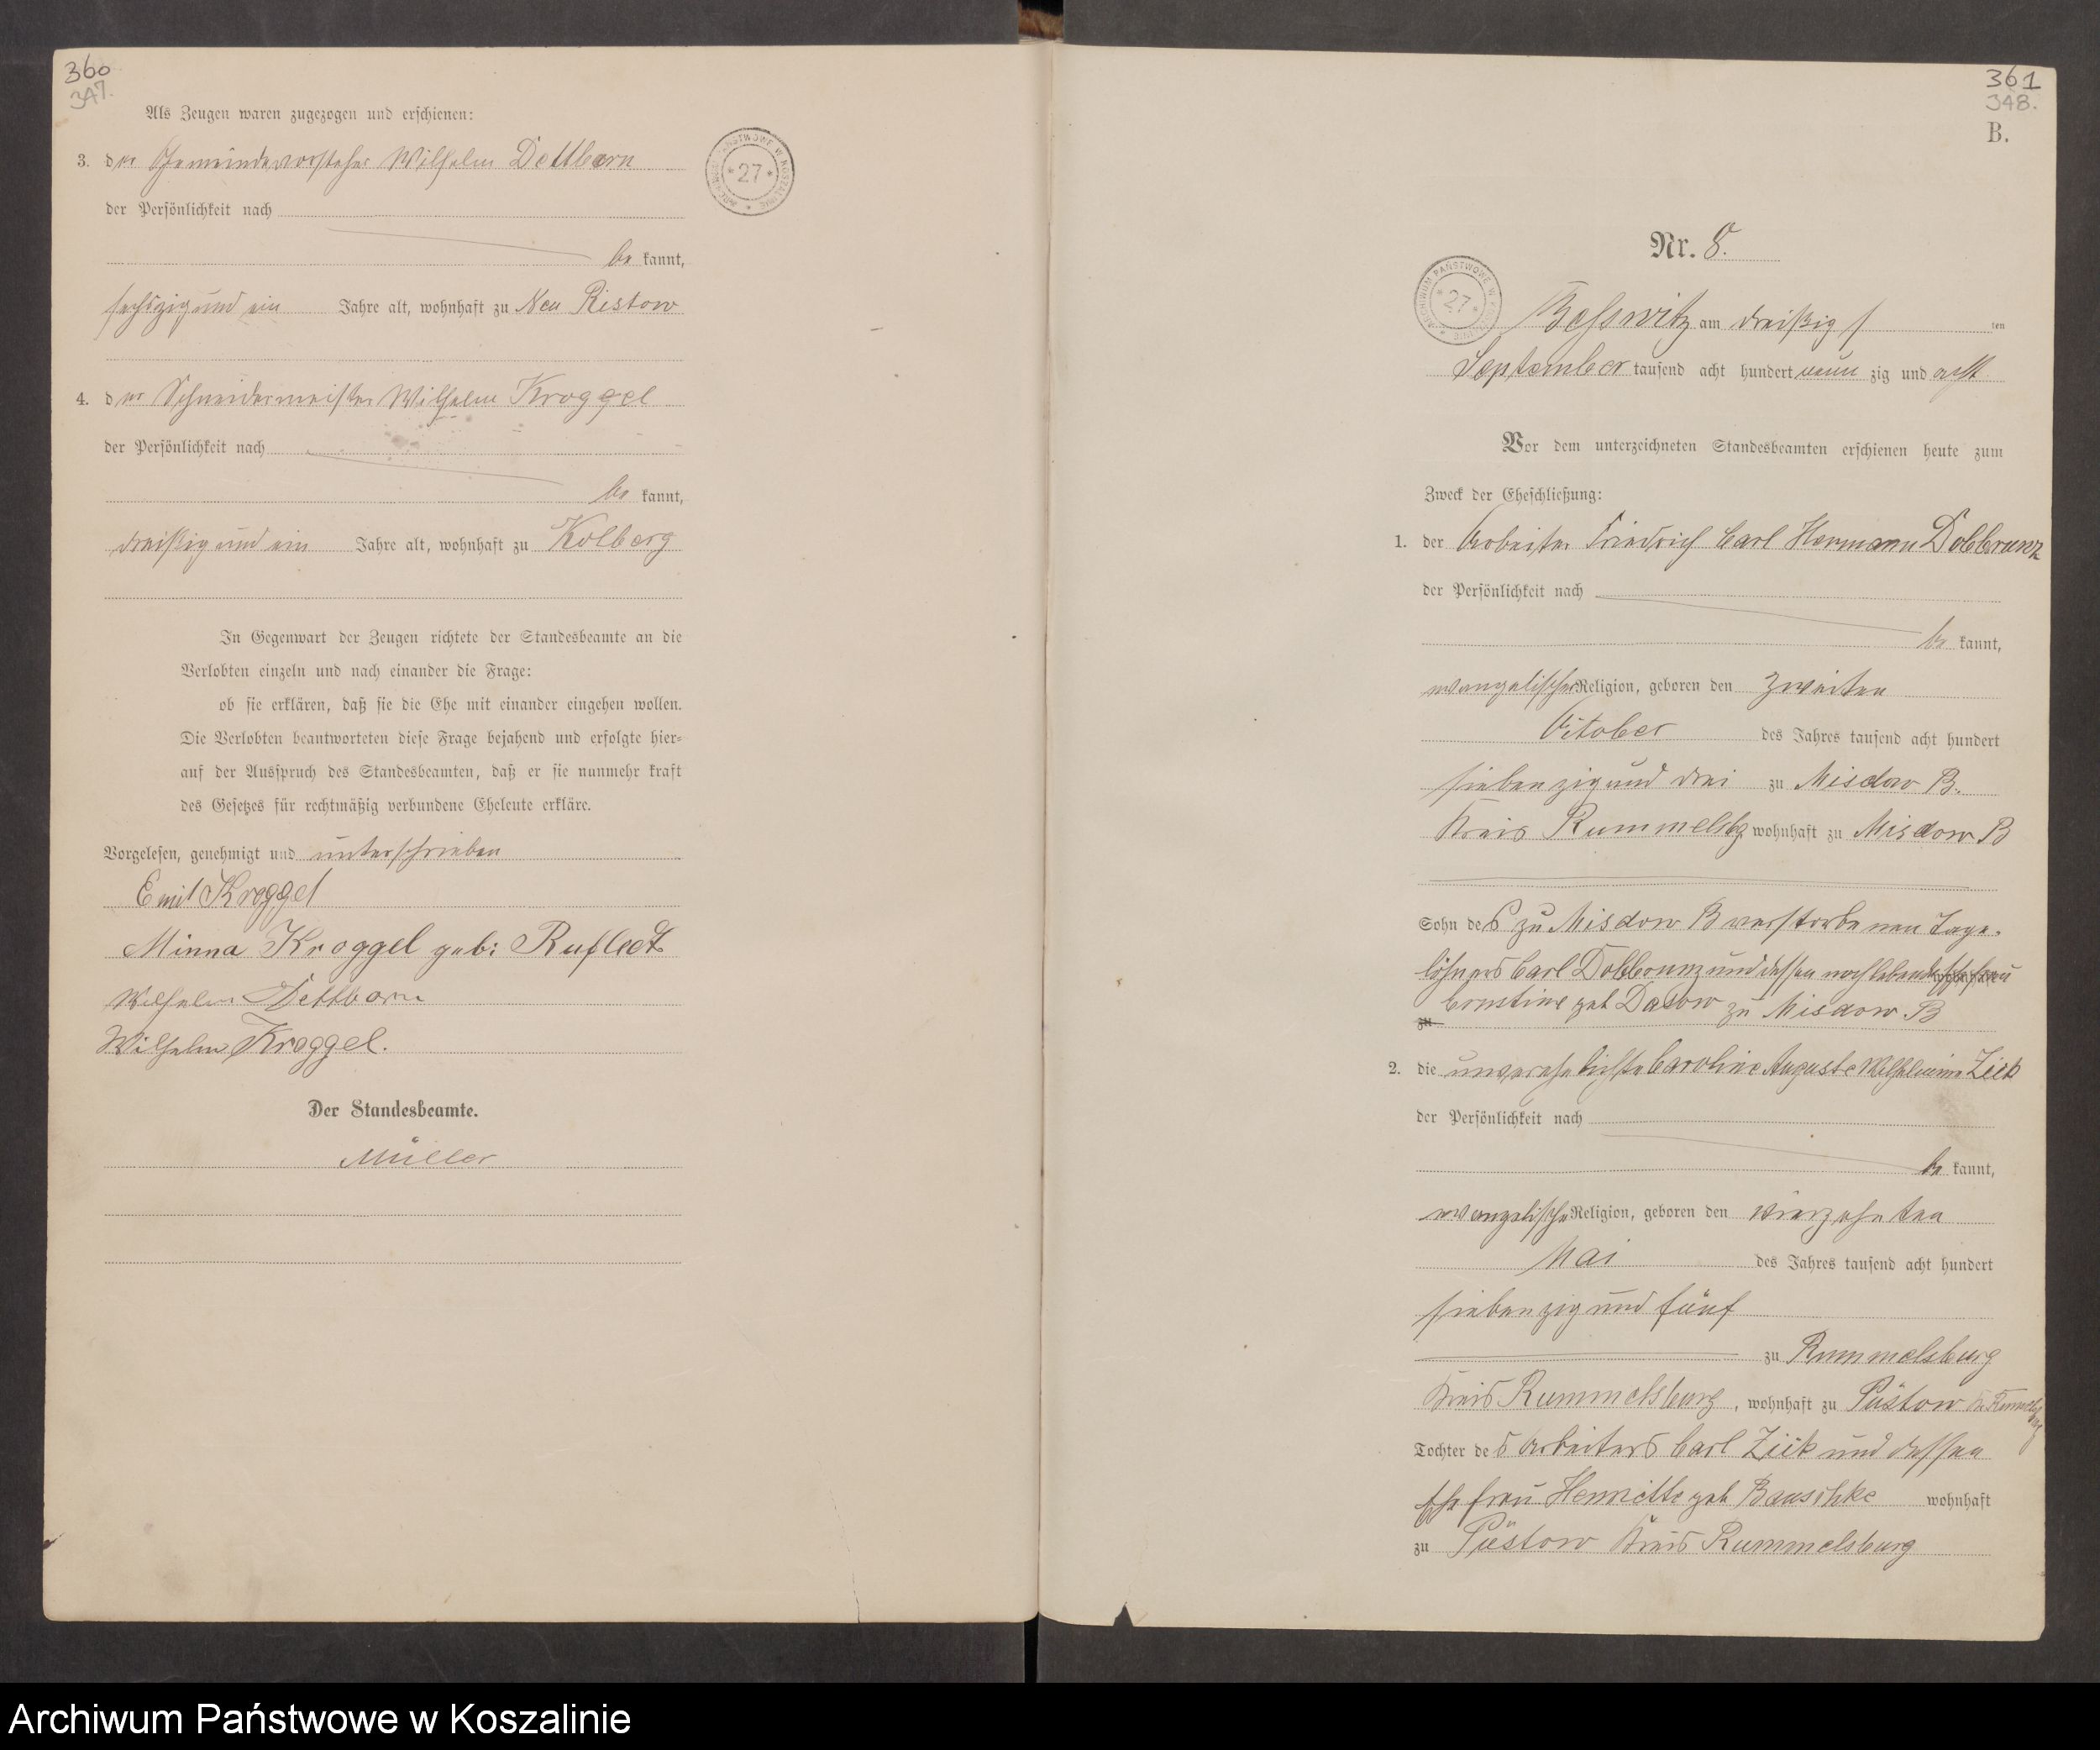 360
347.
Als Zeugen waren zugezogen und erschienen:
3. der Gemeindevorsteher Wilhelm Dettborn
der Persönlichkeit nach
be kannt,
sechszig und ein Jahre alt, wohnhaft zu Neu Ristow
4. der Schneidermeister Wilhelm Kroggel
der Persönlichkeit nach
be kannt,
dreißig und ein Jahre alt, wohnhaft zu Kolberg
In Gegenwart der Zeugen richtete der Standesbeamte an die
Verlobten einzeln und nach einander die Frage:
ob sie erklären, daß sie die Ehe mit einander eingehen wollen.
Die Verlobten beantworteten diese Frage bejahend und erfolgte hier=
auf der Ausspruch des Standesbeamten, daß er sie nunmehr kraft
des Gesetzes für rechtmäßig verbundene Eheleute erkläre.
Vorgelesen, genehmigt und unterschrieben
Emil Kroggel
Minna Kroggel geb: Rufledt
Wilhelm Dettborn
Wilhelm Kroggel.
Der Standesbeamte.
Müller
ARCHIWUM PAŃSTWOWE W KOSZALINIE
* 27 *
361
348.
B.
Nr. 8.
ARCHIWUM PAŃSTWOWE W KOSZALINIE
* 27 *
Besswitz am dreißig s ten
September tausend acht hundert neun zig und acht
Vor dem unterzeichneten Standesbeamten erschienen heute zum
Zweck der Eheschließung:
1. der Arbeiter Friedrich Carl Hermann Dobbrunz
der Persönlichkeit nach
be kannt,
evangelischer Religion, geboren den zweiten
October des Jahres tausend acht hundert
siebenzig und drei zu Misdow B.
Kreis Rummelsbg wohnhaft zu Misdow B
Sohn des zu Misdow B verstorbenen Tage-
löhners Carl Dobbrunz und dessen nachlebende Ehefrau wohnhaft
zu Ernstine geb Dasow zu Misdow B
2. die unverehelichte Caroline Auguste Wilhelmine Ziek
der Persönlichkeit nach
be kannt,
evangelische Religion, geboren den vierzehnten
Mai des Jahres tausend acht hundert
siebenzig und fünf
zu Rummelsburg
Kreis Rummelsburg, wohnhaft zu Püstow Kr. Rummelsburg
Tochter des Arbeiters Carl Ziek und dessen
Ehefrau Henriette geb Bauschke wohnhaft
zu Püstow Kreis Rummelsburg
Archiwum Państwowe w Koszalinie